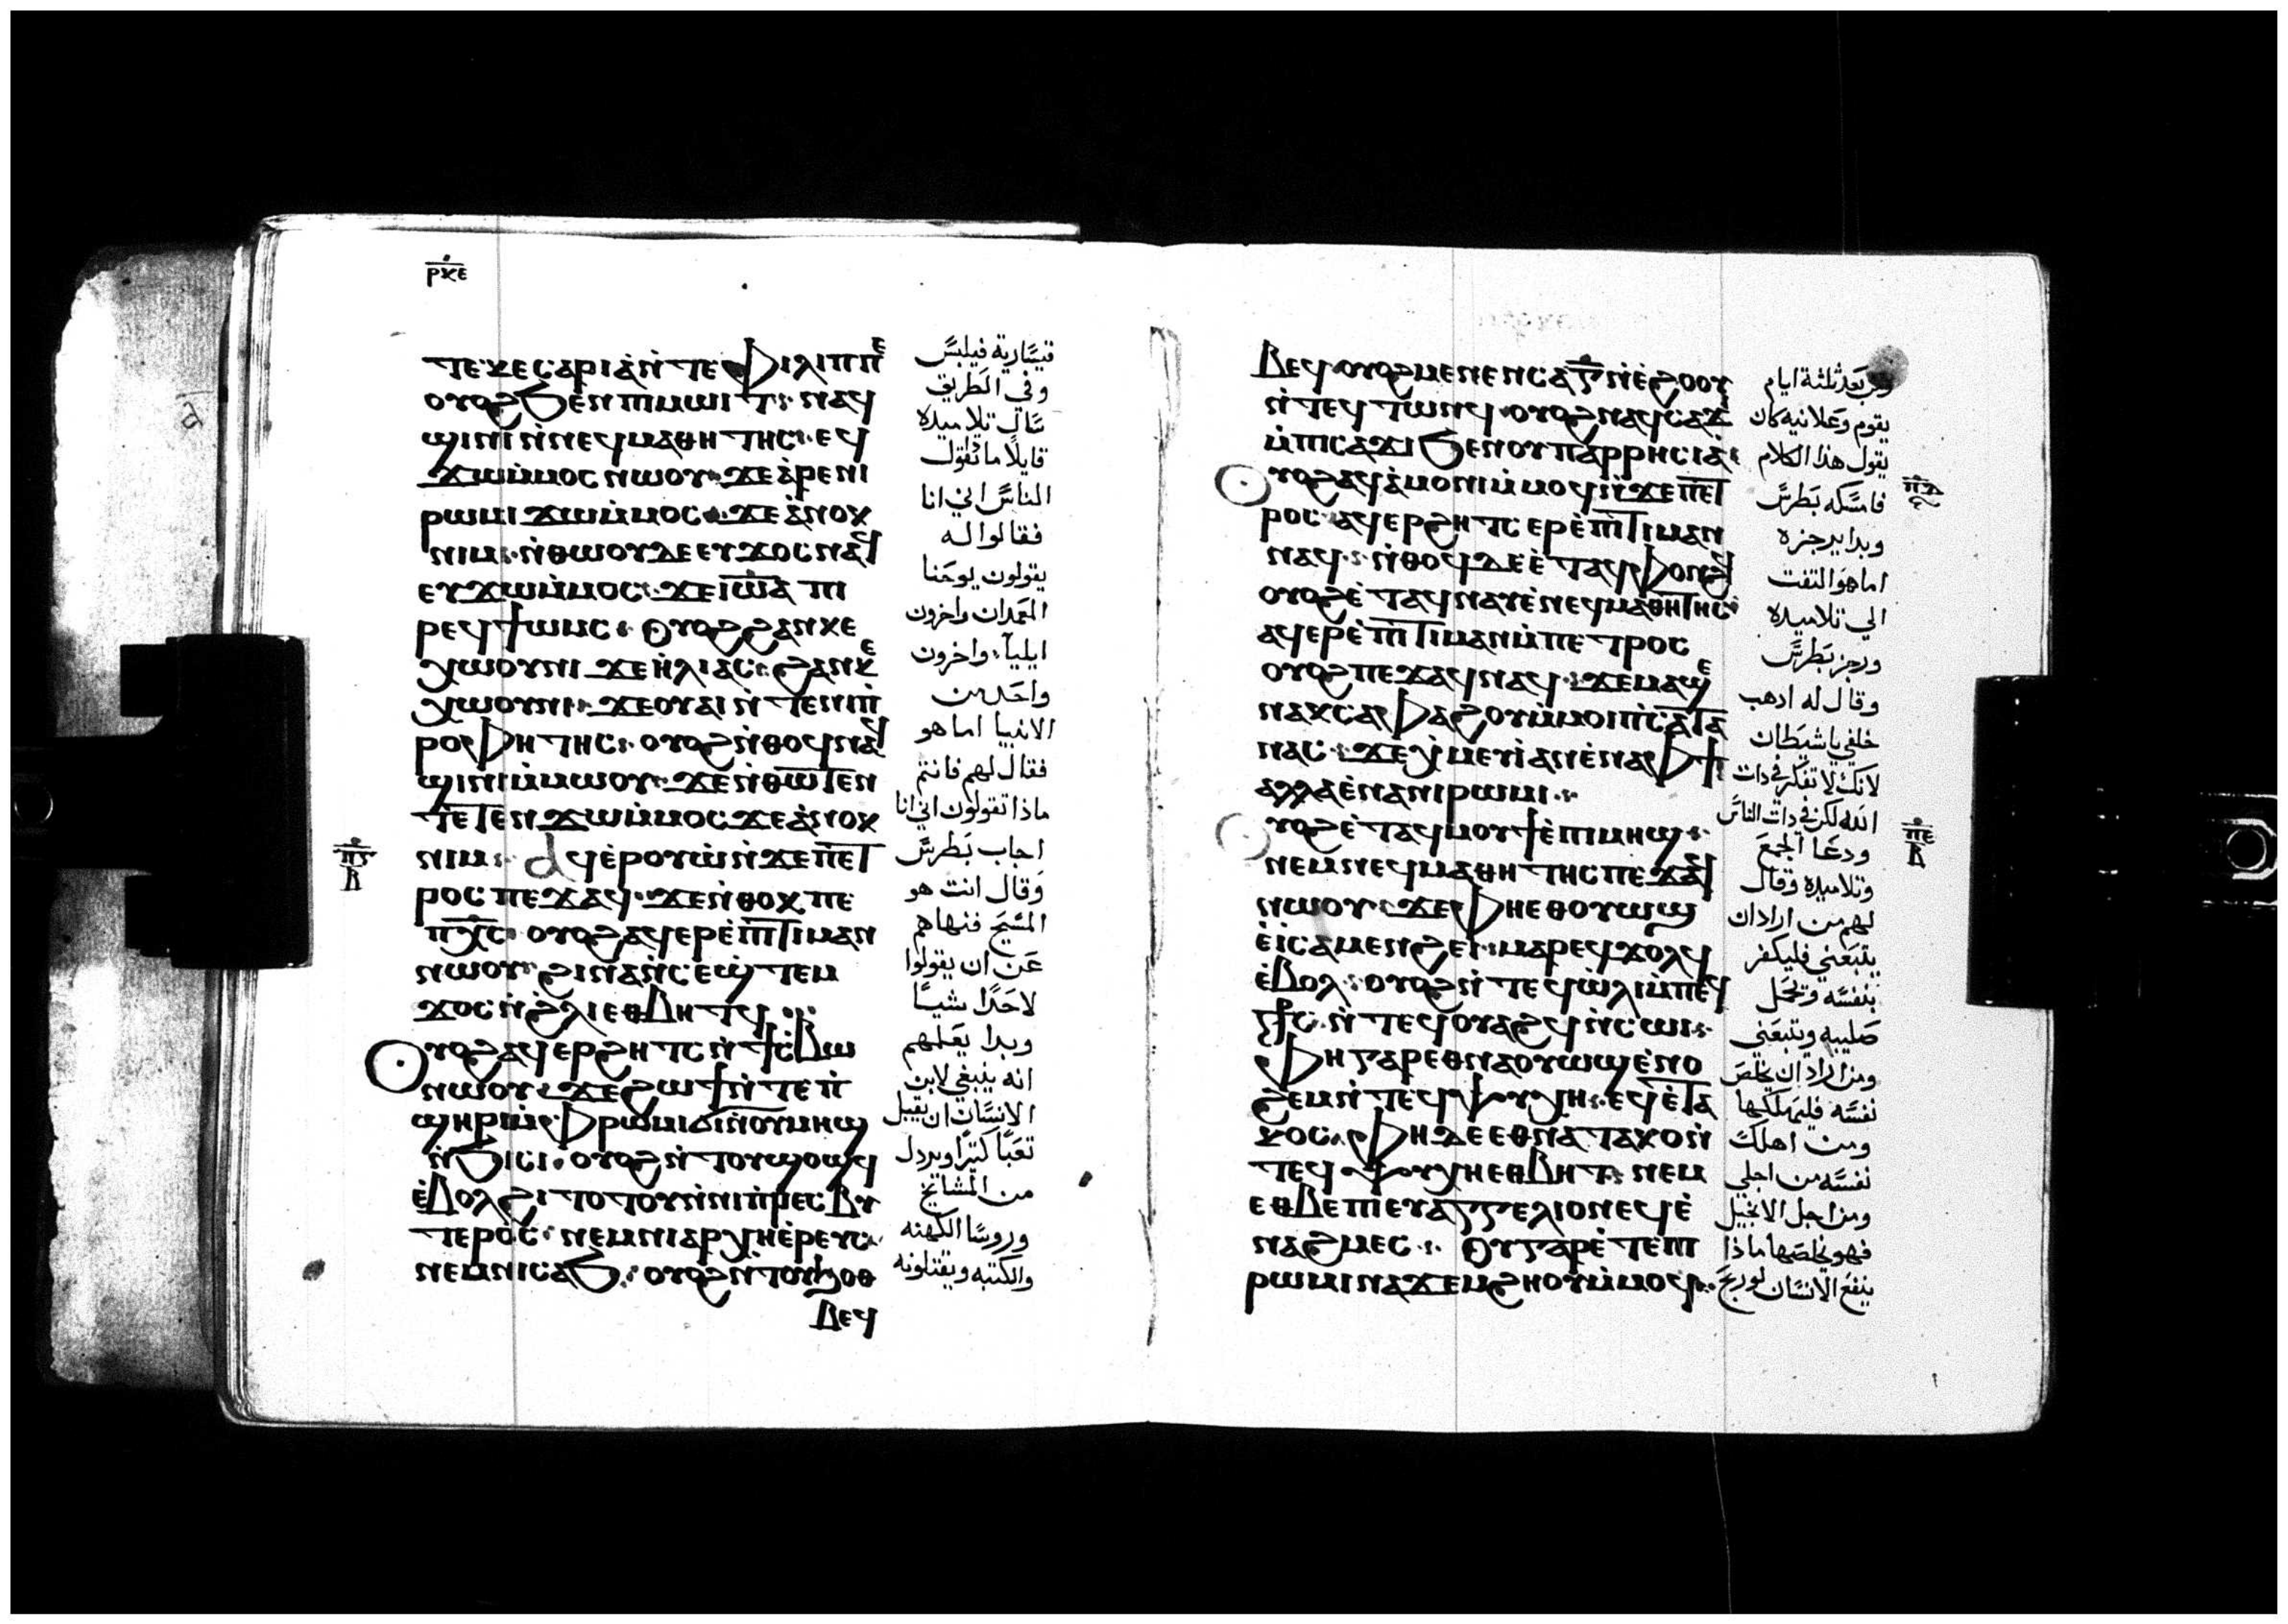 ⲣⲕⲉ
ⲧⲉⲕⲉⲥⲁⲣⲓⲁ̀ⲛ̀ⲧⲉⲫⲓⲗⲓⲡⲡⲉ
ⲟⲩⲟϩϧⲉⲛⲡⲓⲙⲱⲓⲧ ⲛⲁϥ
ϣⲓⲛⲓⲛ̀ⲛⲉϥⲙⲁⲑⲏⲧⲏⲥ ⲉϥ
ϫⲱⲙ̀ⲙⲟⲥ ⲛⲱⲟⲩ ϫⲉⲁ̀ⲣⲉⲛⲓ
ⲣⲱⲙⲓ ϫⲱⲙ̀ⲙⲟⲥ ϫⲉ ⲁ̀ⲛⲟⲕ
ⲛⲓⲙ ⲛ̀ⲑⲱⲟⲩⲇⲉⲉⲩϫⲟⲥ ⲛⲁϥ
ⲉⲩϫⲱⲙ̀ⲙⲟⲥ ϫⲉⲓⲱ̅ⲁ̅ ⲡⲓ
ⲣⲉϥϯⲱⲙⲥ Ⲟⲩⲟϩϩⲁⲛⲕⲉ
ⲭⲱⲟⲩⲛⲓ ϫⲉⲏ̀ⲗⲓⲁⲥ ϩⲁⲛⲕⲉ
ⲭⲱⲟⲩⲛⲓ ϫⲉⲟⲩⲁⲓⲛ̀ⲧⲉⲛⲓⲡ̀
ⲣⲟⲫⲏⲧⲏⲥ ⲟⲩⲟϩⲛ̀ⲑⲟϥⲛⲁϥ
ϣⲓⲛⲓⲙ̀ⲙⲱⲟⲩ ϫⲉⲛ̀ⲑⲱⲧⲉⲛ
ⲧⲉⲧⲉⲛϫⲱⲙ̀ⲙⲟⲥ ϫⲉⲁ̀ⲛⲟⲕ
ⲛⲓⲙ Ⲁϥⲉ̀ⲣⲟⲩⲱ̀ⲛ̀ϫⲉⲡⲉⲧ
ⲣⲟⲥ ⲡⲉϫⲁϥ ϫⲉⲛ̀ⲑⲟⲕ ⲡⲉ
ⲡⲭ̅ⲥ̅ ⲟⲩⲟϩⲁϥⲉⲣⲉ̀ⲡⲓⲧⲓⲙⲁⲛ
ⲛⲱⲟⲩ ϩⲓⲛⲁⲛ̀ⲥⲉϣ̀ⲧⲉⲙ
ϫⲟⲥ ⲛ̀ϩⲗⲓⲉⲑⲃⲏⲧϥ
ⲡ̅ⲋ̅
ⲃ
Ⲟⲩⲟϩⲁϥⲉⲣϩⲏⲧⲥ ⲛ̀ϯⲥ̀ⲃⲱ
ⲛⲱⲟⲩ ϫⲉϩⲱϯⲛ̀ⲧⲉⲡ̀
ϣⲏⲣⲓⲙ̀ⲫⲣⲱⲙⲓϭⲓⲛ̀ⲟⲩⲙⲏϣ
ⲛ̀ϧⲓⲥⲓ ⲟⲩⲟϩⲛ̀ⲧⲟⲩϣⲟϣϥ
ⲉ̀ⲃⲟⲗϩⲓⲧⲟⲧⲟⲩⲛ̀ⲛⲓⲡ̀ⲣⲉⲥⲃⲩ
ⲧⲉⲣⲟⲥ ⲛⲉⲙⲛⲓⲁⲣⲭⲏⲉ̀ⲣⲉⲩⲥ
ⲛⲉⲙⲛⲓⲥⲁϧ ⲟⲩⲟϩⲛ̀ⲧⲟⲩϧⲟⲑ
ⲃⲉϥ
قيسارية فيلبس
وفي الطريق
سال تلاميذه
قايلا ما تقول
الناس اني انا
فقالوا له
يقولون يوحنا
المعمدان واخرون
ايليا واخرون
واحد من
الانبيا اما هو
فقال لهم فانتم
ماذا تقولون اني انا
اجاب بطرس
وقال انت هو
المسيح فنهاهم
عن ان يقولوا
لاحدا شيا
وبدا يعلمهم
انه ينبغي لابن
الانسان ان يقبل
تعبا كتيرا ويرذل
من المشايخ
وروسا الكهنه
والكتبه ويقتلونه
ⲃⲉϥ ⲟⲩⲟϩⲙⲉⲛⲉⲛⲥⲁⲅ̅ⲛ̀ⲉ̀ϩⲟⲟⲩ
ⲛ̀ⲧⲉϥⲧⲱⲛϥ ⲟⲩⲟϩⲛⲁϥⲥⲁϫ
ⲙ̀ⲡⲓⲥⲁϫⲓϧⲉⲛⲟⲩⲡⲁⲣⲣⲏⲥⲓⲁ
Ⲟⲩⲟϩⲁϥⲁ̀ⲙⲟⲛⲓⲙ̀ⲙⲟϥⲛ̀ϫⲉⲡⲉⲧ
ⲣⲟⲥ ⲁϥⲉⲣϩⲏⲧⲥ ⲉⲣⲉ̀ⲡⲓⲧⲓⲙⲁⲛ
ⲛⲁϥ ⲛ̀ⲑⲟϥⲇⲉⲉ̀ⲧⲁϥⲫⲟⲛϩϥ
ⲟⲩⲟϩⲉ̀ⲧⲁϥⲛⲁⲩⲉ̀ⲛⲉϥⲙⲁⲑⲏⲧⲏⲥ
ⲁϥⲉⲣⲉ̀ⲡⲓⲧⲓⲙⲁⲛⲙ̀ⲡⲉⲧⲣⲟⲥ
ⲟⲩⲟϩⲡⲉϫⲁϥⲛⲁϥ ϫⲉⲙⲁϣⲉ
ⲛⲁⲕⲥⲁⲫⲁϩⲟⲩⲙ̀ⲙⲟⲓⲡ̀ⲥⲁⲧⲁ
ⲛⲁⲥ ϫⲉⲭ̀ⲙⲉⲩⲓ̀ⲁⲛⲉ̀ⲛⲁⲫϯ
ⲁⲗⲗⲁⲉ̀ⲛⲁⲛⲓⲣⲱⲙⲓ
Ⲟⲩⲟϩⲉ̀ⲧⲁϥⲙⲟⲩϯⲉ̀ⲡⲓⲙⲏϣ
ⲛⲉⲙⲛⲉϥⲙⲁⲑⲏⲧⲏⲥ ⲡⲉϫⲁϥ
ⲛⲱⲟⲩ ϫⲉⲫⲏⲉⲑⲟⲩⲱϣ
ⲉ̀ⲓ̀ⲥⲁⲙⲉⲛϩⲏⲓ ⲙⲁⲣⲉϥϫⲟⲗϥ
ⲉ̀ⲃⲟⲗ ⲟⲩⲟϩⲛ̀ⲧⲉϥⲱ̀ⲗⲓⲙ̀ⲡⲉϥ
ⲥ̅ⲧ̅ⲥ̅ ⲛ̀ⲧⲉϥⲟⲩⲁϩϥ ⲛ̀ⲥⲱⲓ
Ⲫⲏⲅⲁⲣⲉⲑⲛⲁⲟⲩⲱϣⲉ̀ⲛⲟ
ϩⲉⲙⲛ̀ⲧⲉϥⲯⲩⲭⲏ ⲉϥⲉ̀ⲧⲁ
ⲕⲟⲥ ⲫⲏⲇⲉⲉⲑⲛⲁⲧⲁⲕⲟⲛ̀
ⲧⲉϥⲯⲩⲭⲏⲉⲑⲃⲏⲧ ⲛⲉⲙ
ⲉⲑⲃⲉⲡⲓⲉⲩⲁⲅⲅⲉⲗⲓⲟⲛⲉϥⲉ̀
ⲛⲁϩⲙⲉⲥ Ⲟⲩⲅⲁⲣⲉ̀ⲧⲉⲡⲓ
ⲣⲱⲙⲓⲛⲁϫⲉⲙϩⲏⲟⲩⲙ̀ⲙⲟϥ
ومن بعد ثلثة ايام
يقوم وعلانيه كان
يقول هذا الكلام
فامسكه بطرس
وبدا يزجره
اما هو التفت
الي تلاميذه
وزجر بطرس
وقال له اذهب
خلفي يا شيطان
لانك لا تفكر في ذات
الله لكن في ذات الناس
ودعا الجمع
وتلاميذه وقال
لهم من اراد ان
يتبعني فليكفر
بنفسه ويحمل
صليبه ويتبعني
ومن اراد ان يخلص
نفسه فليهلكها
ومن اهلك
نفسه من اجلي
ومن اجل الانجيل
فهو يخلصها ماذا
ينفع الانسان لو ربح
ⲡ̅ⲉ̅
ⲃ